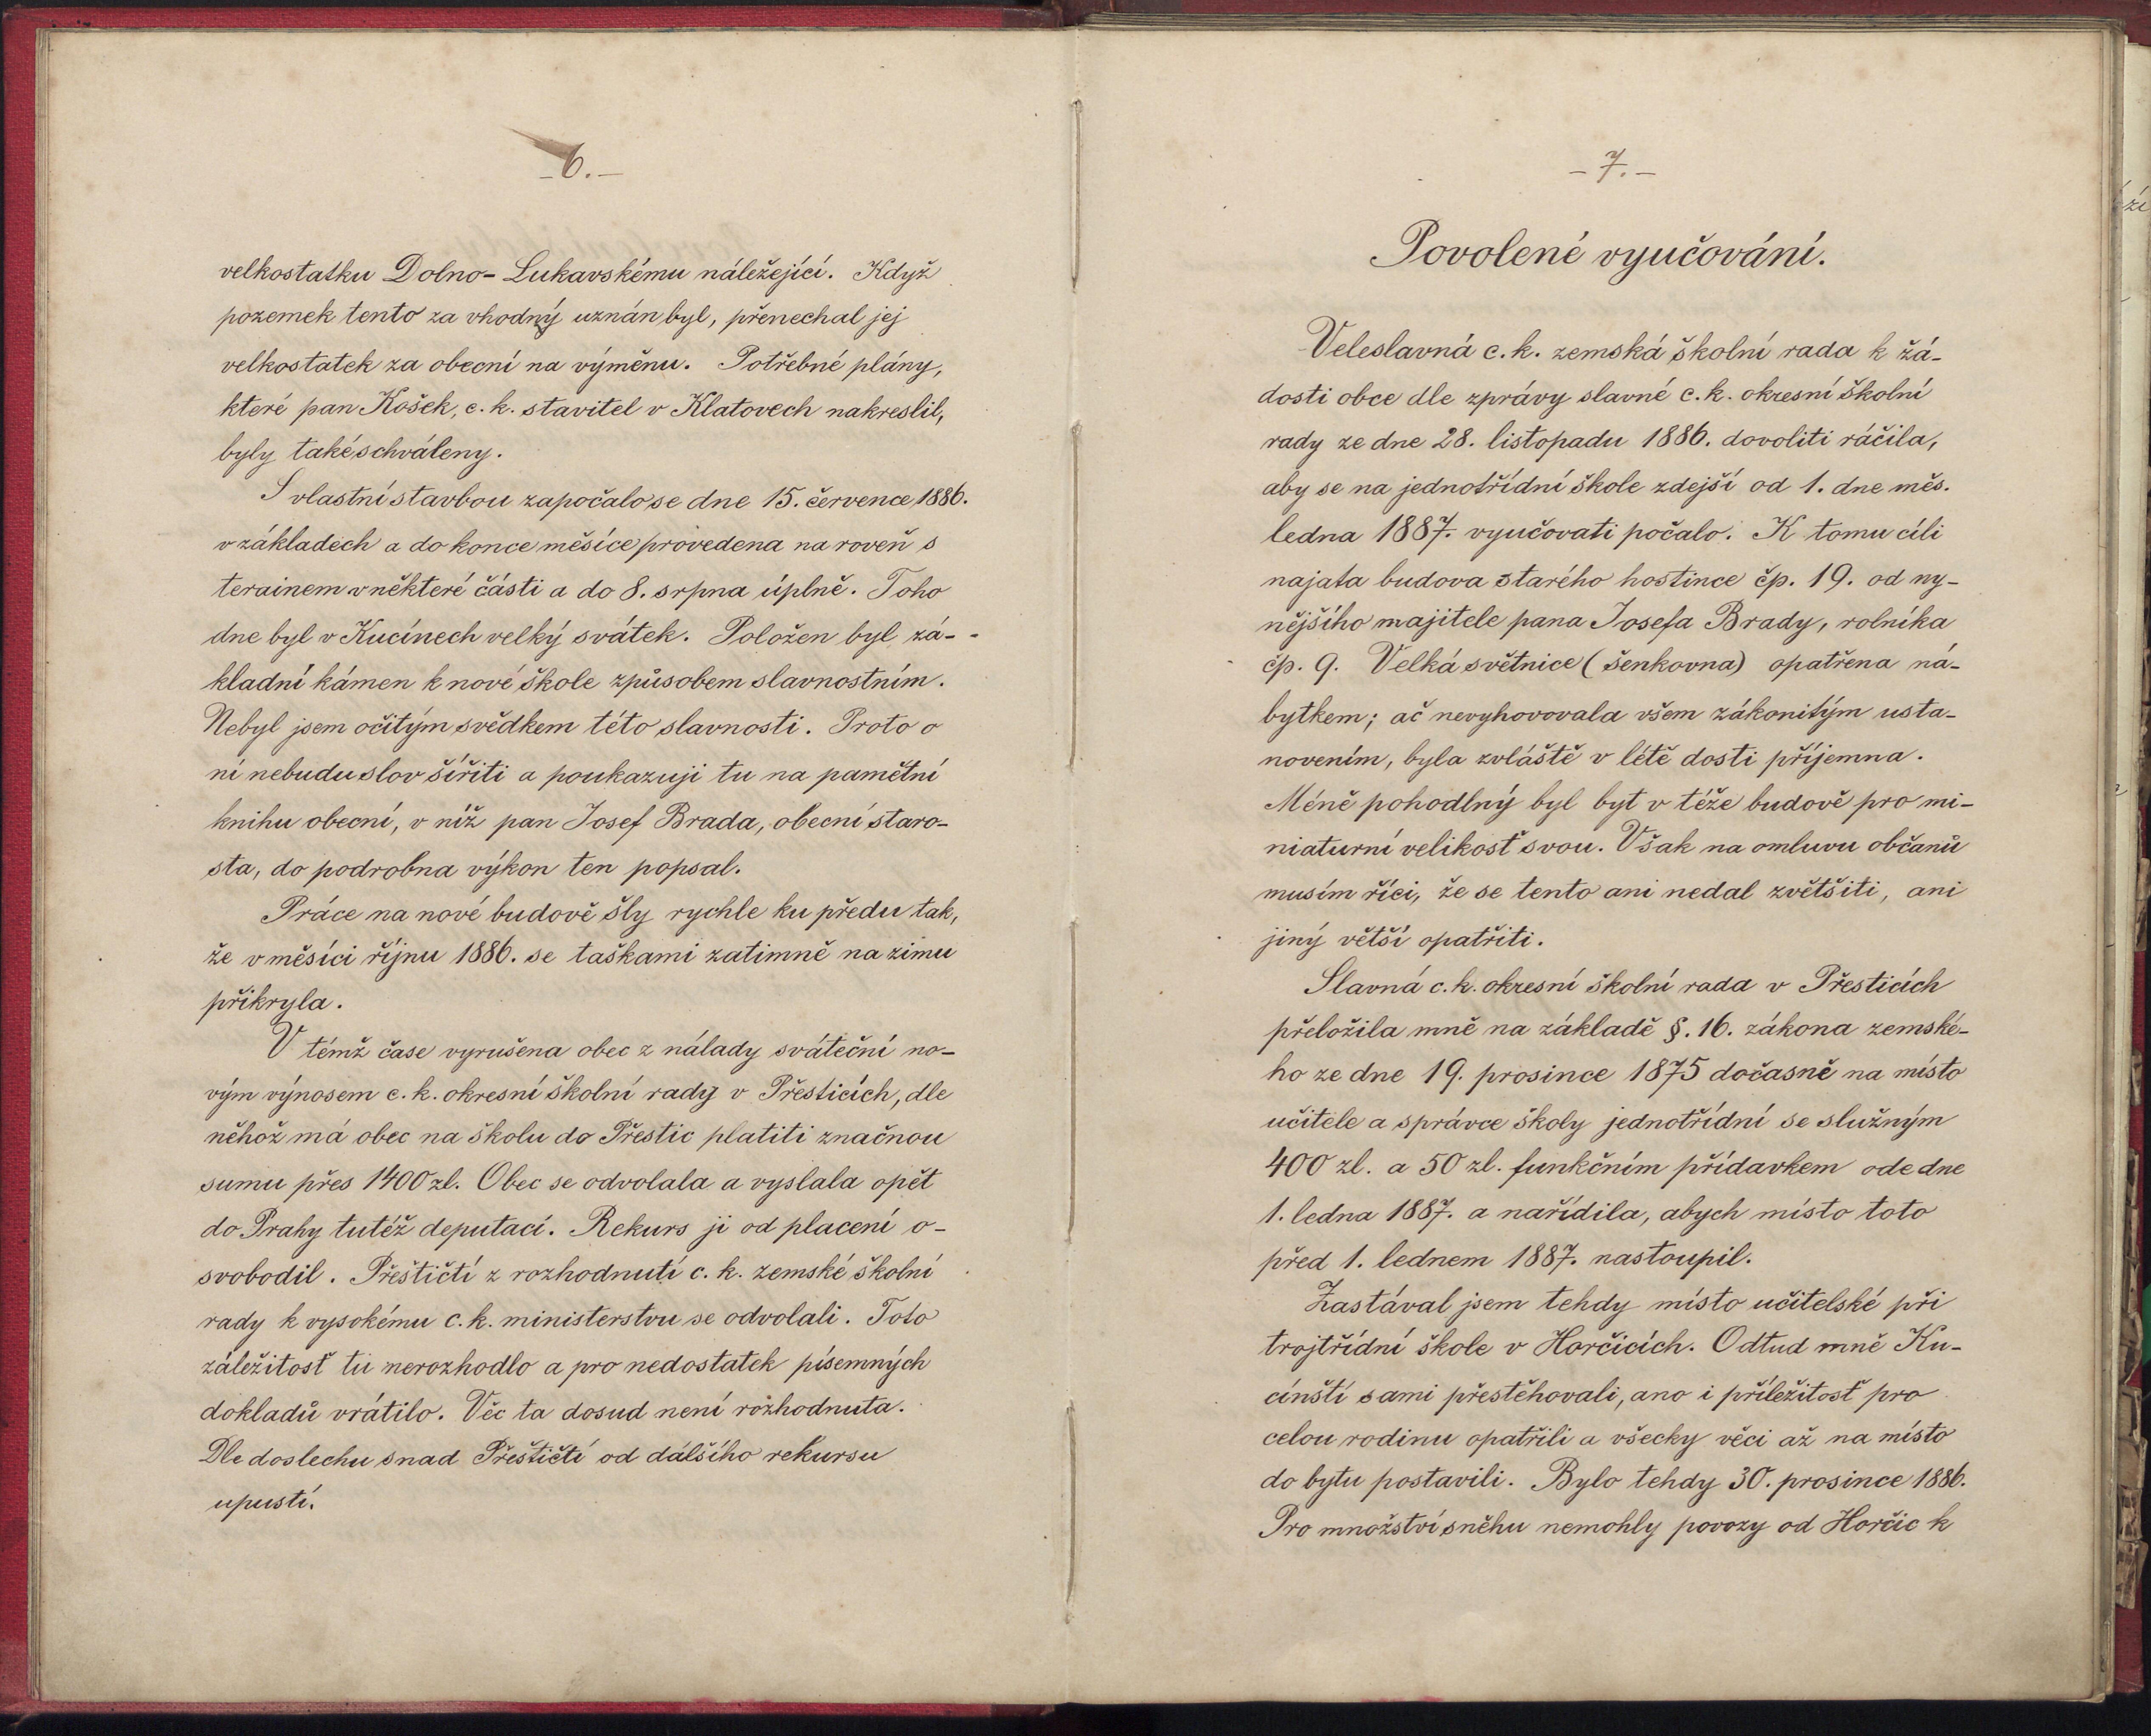 -6.-
velkostatku Dolno-Lukavskému náležející. Když
pozemek tento za vhodný uznán byl, přenechal jej
velkostatek za obecní na výměnu. Potřebné plány,
které pan Košek, c. k. stavitel v Klatovech nakreslil,
byly také schváleny.
S vlastní stavbou započalo se dne 15. července 1886.
v základech a do konce měsíce provedena na roveň s
terainem v některé části a do 8. srpna úplně. Toho
dne byl v Kucínech velký svátek. Položen byl zá-
kladní kámen k nové škole způsobem slavnostním.
Nebyl jsem očitým svědkem této slavnosti. Proto o
ní nebudu slov šířiti a poukazuji tu na pamětní
knihu obecní, v níž pan Josef Brada, obecní staro-
sta, do podrobna výkon ten popsal.
Práce na nové budově šly rychle ku předu tak,
že v měsíci říjnu 1886. se taškami zatimně na zimu
přikryla.
V témž čase vyrušena obec z nálady sváteční no-
vým výnosem c. k. okresní školní rady v Přesticích, dle
něhož má obec na školu do Přestic platiti značnou
sumu přes 1400 zl. Obec se odvolala a vyslala opět
do Prahy tutéž deputaci. Rekurs ji od placení o-
svobodil. Přeštičtí z rozhodnutí c. k. zemské školní
rady k vysokému c. k. ministerstvu se odvolali. Toto
záležitosť tu nerozhodlo a pro nedostatek písemných
dokladů vrátilo. Věc ta dosud není rozhodnuta.
Dle doslechu snad Přeštičtí od dálšího rekursu
upustí.
-7.-
Povolené vyučování.
Veleslavná c. k. zemská školní rada k žá-
dosti obce dle zprávy slavné c. k. okresní školní
rady ze dne 28. listopadu 1886. dovoliti ráčila,
aby se na jednotřídní škole zdejší od 1. dne měs.
ledna 1887. vyučovati počalo. K tomu cíli
najata budova starého hostince čp. 19. od ny-
nějšího majitele pana Josefa Brady, rolníka
čp. 9. Velká světnice (šenkovna) opatřena ná-
bytkem; ač nevyhovovala všem zákonitým usta-
novením, byla zvláště v létě dosti příjemna.
Méně pohodlný byl byt v téže budově pro mi-
niaturní velikosť svou. Však na omluvu občanů
musím říci, že se tento ani nedal zvětšiti, ani
jiný větší opatřiti.
Slavná c. k. okresní školní rada v Přesticích
přeložila mně na základě §. 16. zákona zemské-
ho ze dne 19. prosince 1875 dočasně na místo
učitele a správce školy jednotřídní se služným
400 zl. a 50 zl. funkčním přídavkem ode dne
1. ledna 1887. a nařídila, abych místo toto
před 1. lednem 1887. nastoupil.
Zastával jsem tehdy místo učitelské při
trojtřídní škole v Horčicích. Odtud mně Ku-
cínští sami přestěhovali, ano i příležitosť pro
celou rodinu opatřili a všecky věci až na místo
do bytu postavili. Bylo tehdy 30. prosince 1886.
Pro množství sněhu nemohly povozy od Horčic k